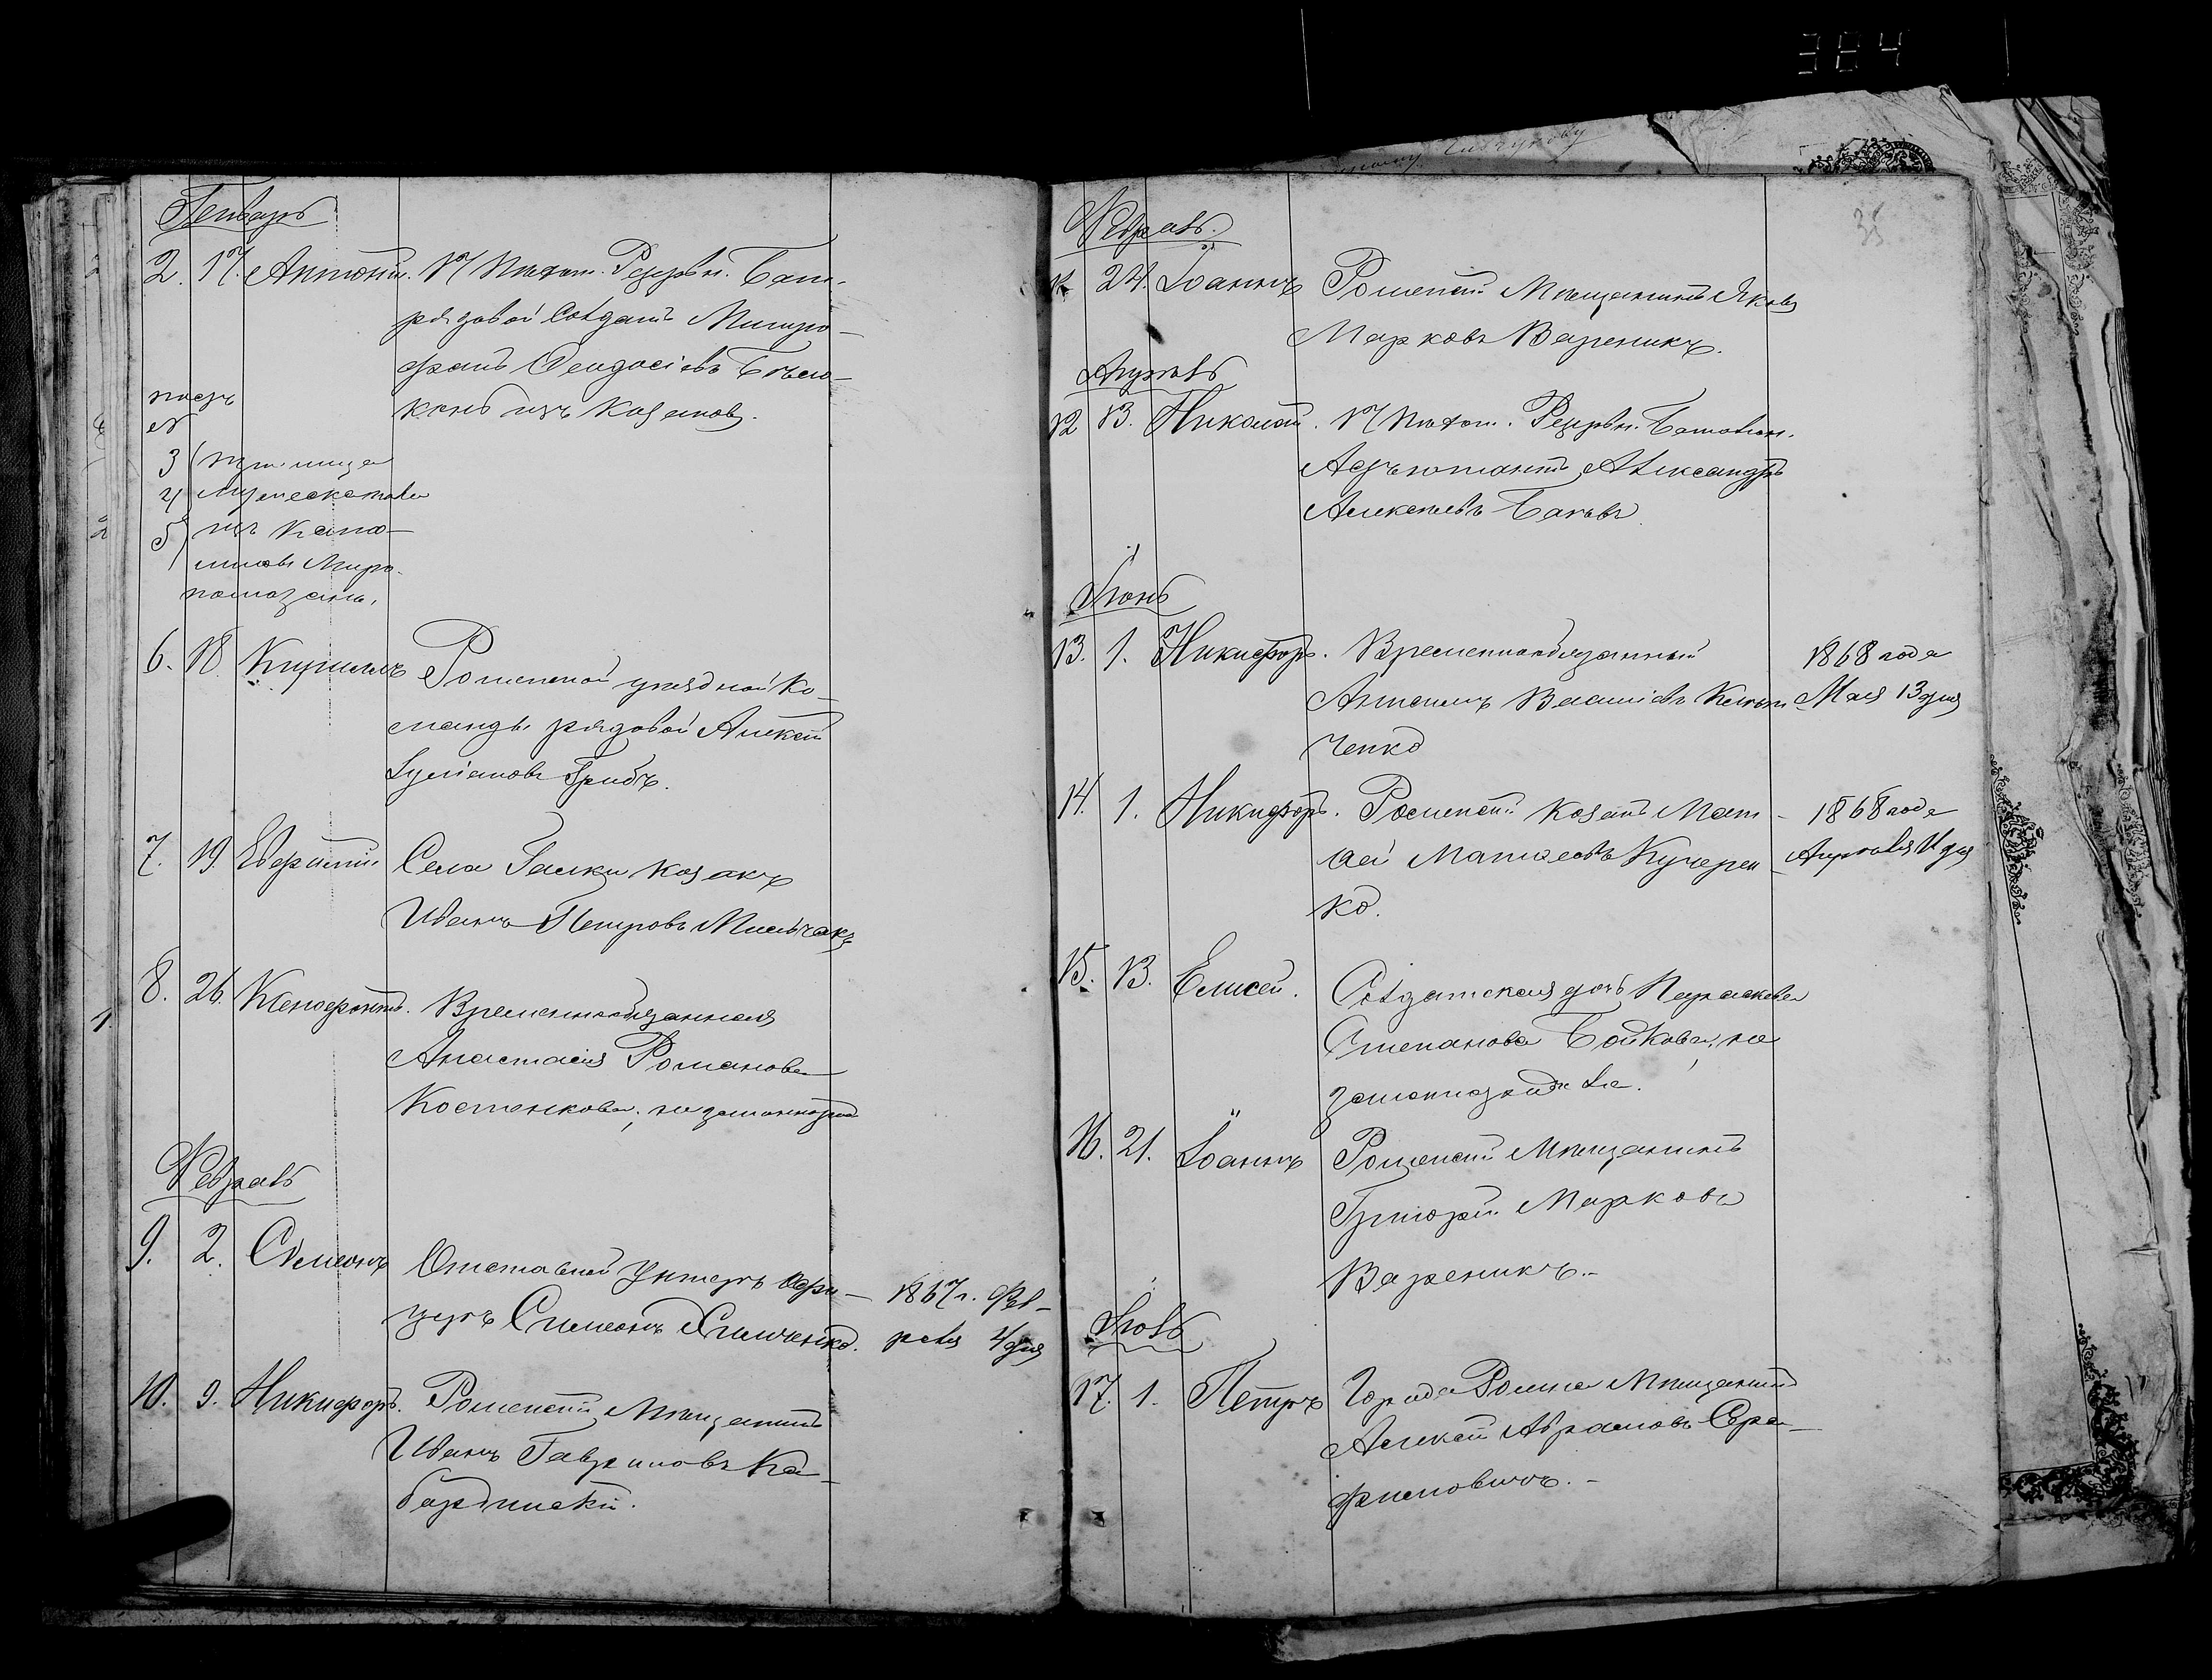 384
35
Генварь
2. 17. Антоній. 17 Пѣхот. Резервн. Бата-
рядовой Солдатъ Митро-
фанъ Феодосіевъ Бѣло-
конь изъ Козаковъ.
подъ
№
3 три лица
4 мужескаго пола
5 изъ
Миро-
помазаны.
6. 18 Кириллъ Роменской уѣздной Ко-
манды рядовой Алексѣй
Грибъ.
7. 19. Евфимій Села Галки Козакъ
Иванъ Петровъ Мисьчакъ
8. 26. Ксенофонтъ. Временнообязанная
Анастасія Романова
Костенкова, незамужняя
Февраль
9. 2. Симеонъ Отставной Унтеръ Офи-
церъ Симеонъ Симченко. 1867 г. Фев-
раля 4 дня
10. 9. Никифоръ. Роменскій Мѣщанинъ
Иванъ Гавриловъ Ка-
бардинскій.
Февраль.
11. 24. Іоаннъ Роменскій Мѣщанинъ Яковъ
Марковъ Вареникъ.
Апрѣль
12 13. Николай. 17 Пѣхот. Резервн. Баталіон.
Адъютантъ Александръ
Алексѣевъ
Іюнь
13. 1. Никифоръ. Временнообязанный
Антонъ Васильевъ
ченко
1868 года
Мая 13 дня
14. 1. Никифоръ. Роменскій Козакъ Мат-
вей Матвеевъ Кучерен-
ко.
1868 года
Апрѣля 11 дня
15. 13. Елисей. Солдатская дочь Параскева
Степанова Бойкова, не
замужняя.
16. 21. Іоаннъ Роменскій Мѣщанинъ
Григорій Марковъ
Вареникъ.-
Іюль
17. 1. Петръ Города Ромна Мѣщанинъ
Алексѣй Абрамовъ Сера-
фимовичъ.-